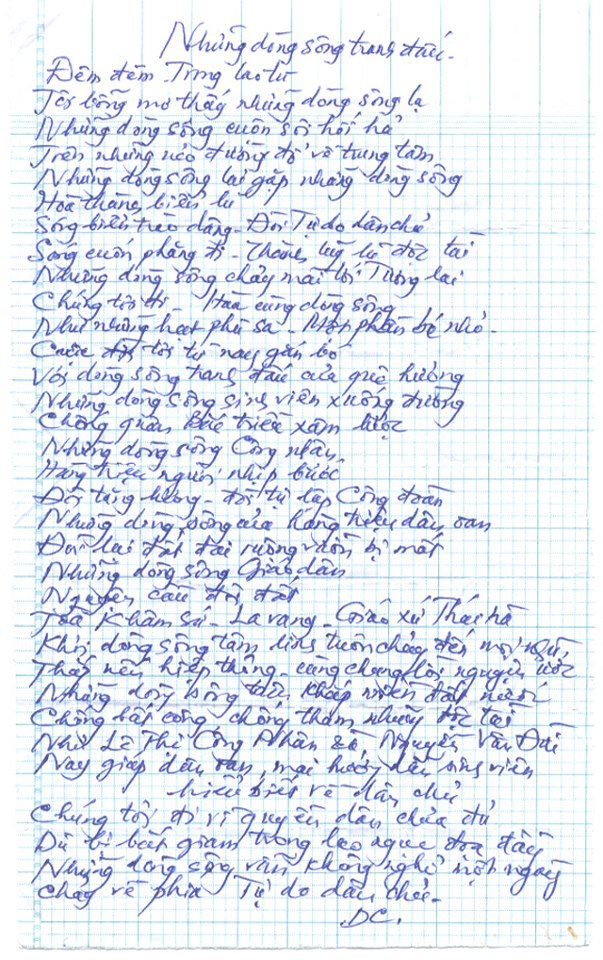 Những dòng sông tranh đấu.
Đêm đêm - Từng lao tù
Tôi bỗng mơ thấy những dòng sông lạ
Những dòng sông cuồn sôi hối hả
Trên những nẻo đường đổ về trung tâm
Những dòng sông lại gặp những dòng sông
Hòa thành biển lũ
Sóng biển trào dâng - Đòi Tự do dân chủ
Sóng cuốn phăng đi - thành lũy độc tài
Những dòng sông chảy mãi tới Tương lai
Chúng tôi đi - Hòa cùng dòng sông
Như những hạt phù sa - Một phần bé nhỏ -
Cuộc đời tôi từ nay gắn bó
Với dòng sông tranh đấu của quê hương
Những dòng sông sinh viên xuống đường
Chống quân Bắc triều xâm lược
Những dòng sông Công nhân
Hàng triệu người nhịp bước
Đòi tăng lương - đòi tự lập Công đoàn
Những dòng sông của hàng triệu dân oan
Đòi lại đất đai ruộng vườn bị mất
Những dòng sông Giáo dân
Nguyện cầu đòi đất
Tòa Khâm sứ - La vang - Giáo xứ Thái hà
Khi dòng sông tâm linh tuôn chảy đến mọi
Thắp nến hiệp thông - cùng chung lời nguyện ước
Những dòng sông trên khắp miền đất nước
Chống bất công chống tham nhũng độc tài
Như Lê Thị Công Nhân và Nguyễn Văn Đài
Nay giúp dân oan, mai hướng dẫn sinh viên
hiểu biết về dân chủ
Chúng tôi đi vì quyền dân chưa đủ
Dù bị bắt giam trong lao ngục đọa đầy
Những dòng sông vẫn không nghỉ một ngày
Chảy về phía Tự do dân chủ.
DC.